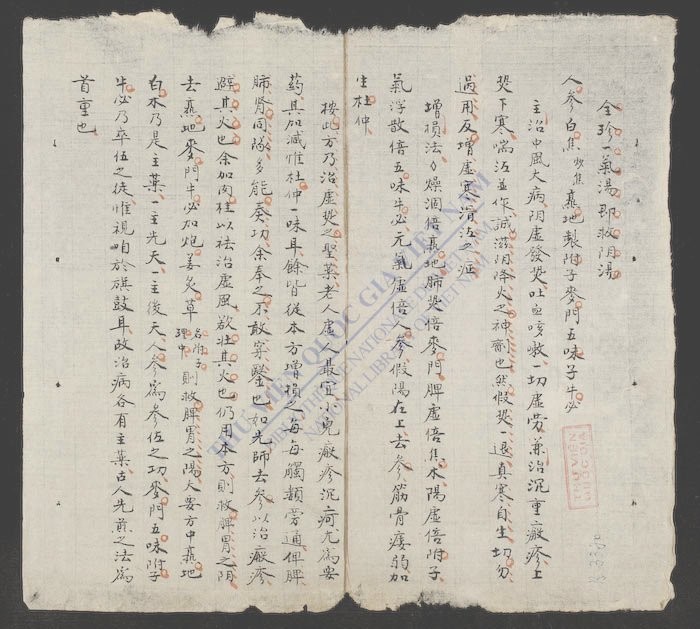 全珍一氣湯 即救阴湯
人参 白𤇆 炒焦 熹地 製附子 麥門 五味子 牛必
主治中風大病阴虛發𤇆吐血咳嗽一切虛劳兼治沉重癍疹上
𤇆下寒喘泻並作誠滋阴降火之神齊也𤇆假𤇆一退真寒自生切勿
過用反增虛寒滑泻之症
增損法 燥涸倍熹地肺𤇆倍麥門脾虛倍焦木陽虛倍附子
氣浮散倍五味牛必元氣虛倍人参假陽在上去参筋骨痿弱加
生杜仲
按此方乃治虛𤇆之聖藥老人虛人最宜小兒癍疹沉疴尤為要
药其加减惟杜仲一味耳餘皆從本方增損之每每觸類旁通俾脾
肺肾同隊多能奏功余奉之不敢穿鑿也如先師去参以治癍疹
避其火也余加肉桂以祛治虛風欲壮其火也仍用本方則救脾胃之阴
去熹地麥門牛必加炮姜炙草 名附子理中 則救脾胃之陽大要方中熹地
白木乃是主藥一主先天一主後天人参為参伍之功麥門五味附子
牛必乃卒伍之徒惟視咱於旗鼓耳故治病各有主藥古人先煎之法為
首重也
THƯ VIỆN QUỐC GIA VIỆT NAM
NATIONAL LIBRARY OF VIETNAM
THƯ VIỆN
QUỐC GIA